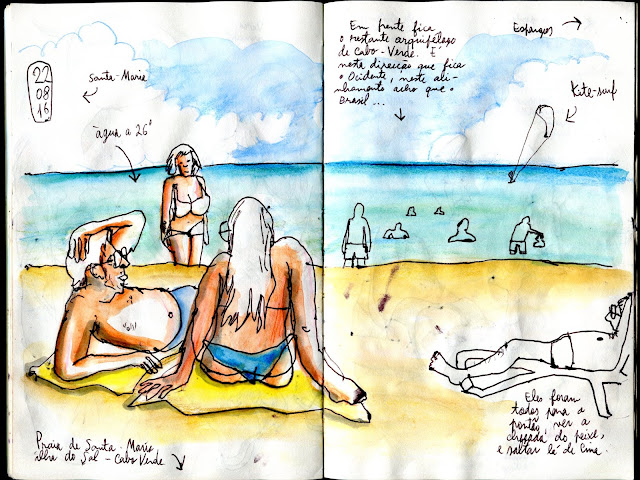 22
08
16
Santa-Maria
água a 26°
Em frente fica
o restante arquipélago
de Cabo-Verde. É
nesta direcção que fica
o Ocidente, neste ali-
nhamento acho que o
Brasil...
Espargos
Kite-surf
Praia de Santa-Maria
ilha do Sal - Cabo Verde
Eles foram
todos para o
pontão, ver a
chegada do peixe,
e saltar lá de cima.